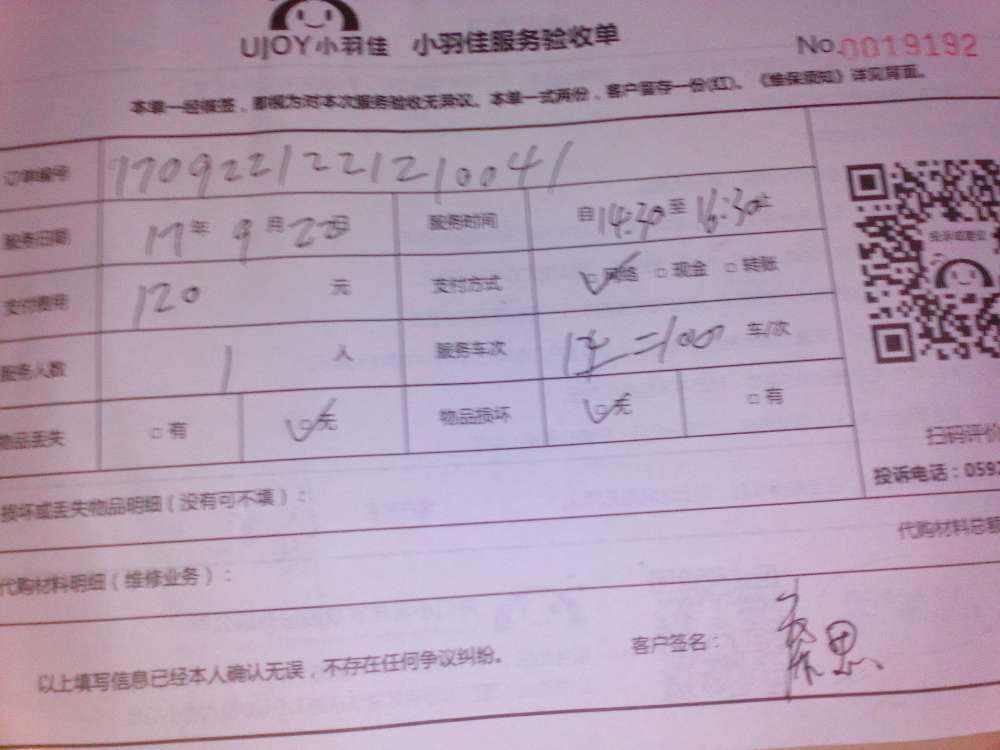 UJOY小羽佳 小羽佳服务验收单 No.0019192
本单一经核签，即视为对本次服务验收无异议。本单一式两份，客户留存一份(红)。《维保须知》详见背面。
订单编号 1709221221210041
服务日期 17年 9月20日 服务时间 自14:30至16:30止
支付费用 120 元 支付方式 网络 □现金 □转账
服务人数 1 人 服务车次 车/次
物品丢失 □有 □无 物品损坏 □无 □有
扫码评价
投诉电话：059
损坏或丢失物品明细（没有可不填）：
代购材料总额
代购材料明细（维修业务）：
以上填写信息已经本人确认无误，不存在任何争议纠纷。 客户签名： 思